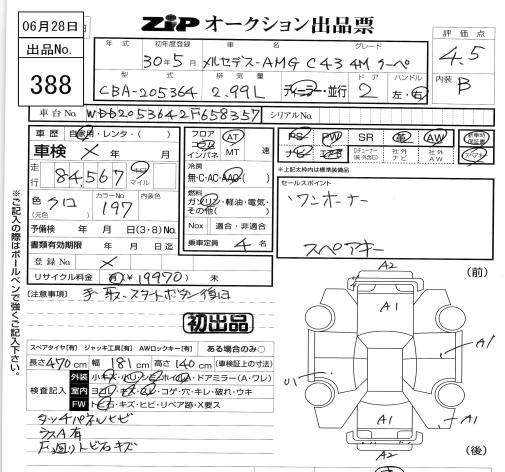 06月28日
出品No.
388
ZIP オークション出品票
評価点
4.5
内装 B
年式 初年度登録 車名 グレード
30年5月 メルセデス-AMG C43 4M クーペ
型式 排気量 ドア ハンドル
CBA-205364 2.99L ディーラー・並行 2 左・右
車台No. WDD2053642F658357 シリアルNo.
車歴 自家用・レンタ・( )
車検 × 年 月
走行 84,567 キロ マイル
色 クロ カラーNo. 197 内装色
(元色)
予備検 年 月 日(3・8)No.
書類有効期限 年 月 日迄
登録No. ×
リサイクル料金 有(¥19970) 未
フロア コラム インパネ AT MT 速
冷房
無・C・AC・AAC
燃料
ガソリン・軽油・電気・その他( )
Nox 適合・非適合
乗車定員 4 名
PS PW SR 革 AW
ナビ エアB Dディーラーナビ 社外ナビ 社外AW
新車時保証書
スペアキー
*上記太枠内は標準装備品
セールスポイント
ワンオーナー
スペアキー
[注意事項] 手取、スタートボタン後日
初出品
スペアタイヤ[有] ジャッキ工具[有] AWロックキー[有] ある場合のみ○
長さ 470 cm 幅 181 cm 高さ 140 cm (車検証上の寸法)
検査記入
外装 小キズ・ドアミラー(A・ワレ)
室内 コゲ・穴・キレ・破れ・ウキ
FW トビ石・キズ・ヒビ・リペア跡・X要ス
タッチパネルヒビ
F廻りトビ石キズ
※ご記入の際はボールペンで強くご記入下さい。
(前)
A2
A1
A1
U1
A1
A1
A2
(後)